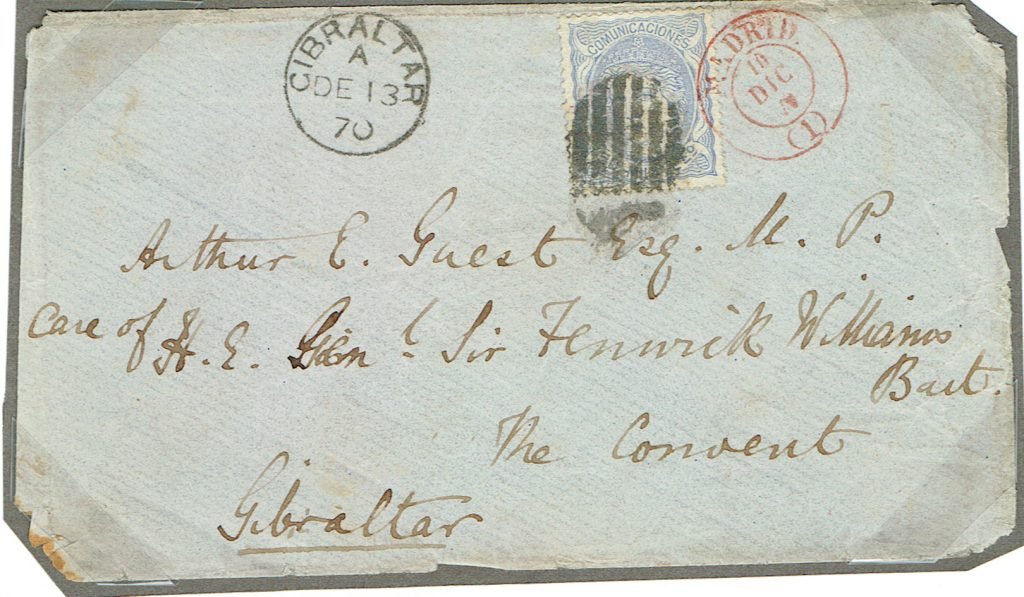 GIBRALTAR
A
DE 13
70
COMUNICACIONES
MADRID
10
DIC
(1)
Arthur E. Guest Esq. M. P.
Care of H. E. Genl Sir Fenwick Williams
Bart.
The Convent
Gibraltar